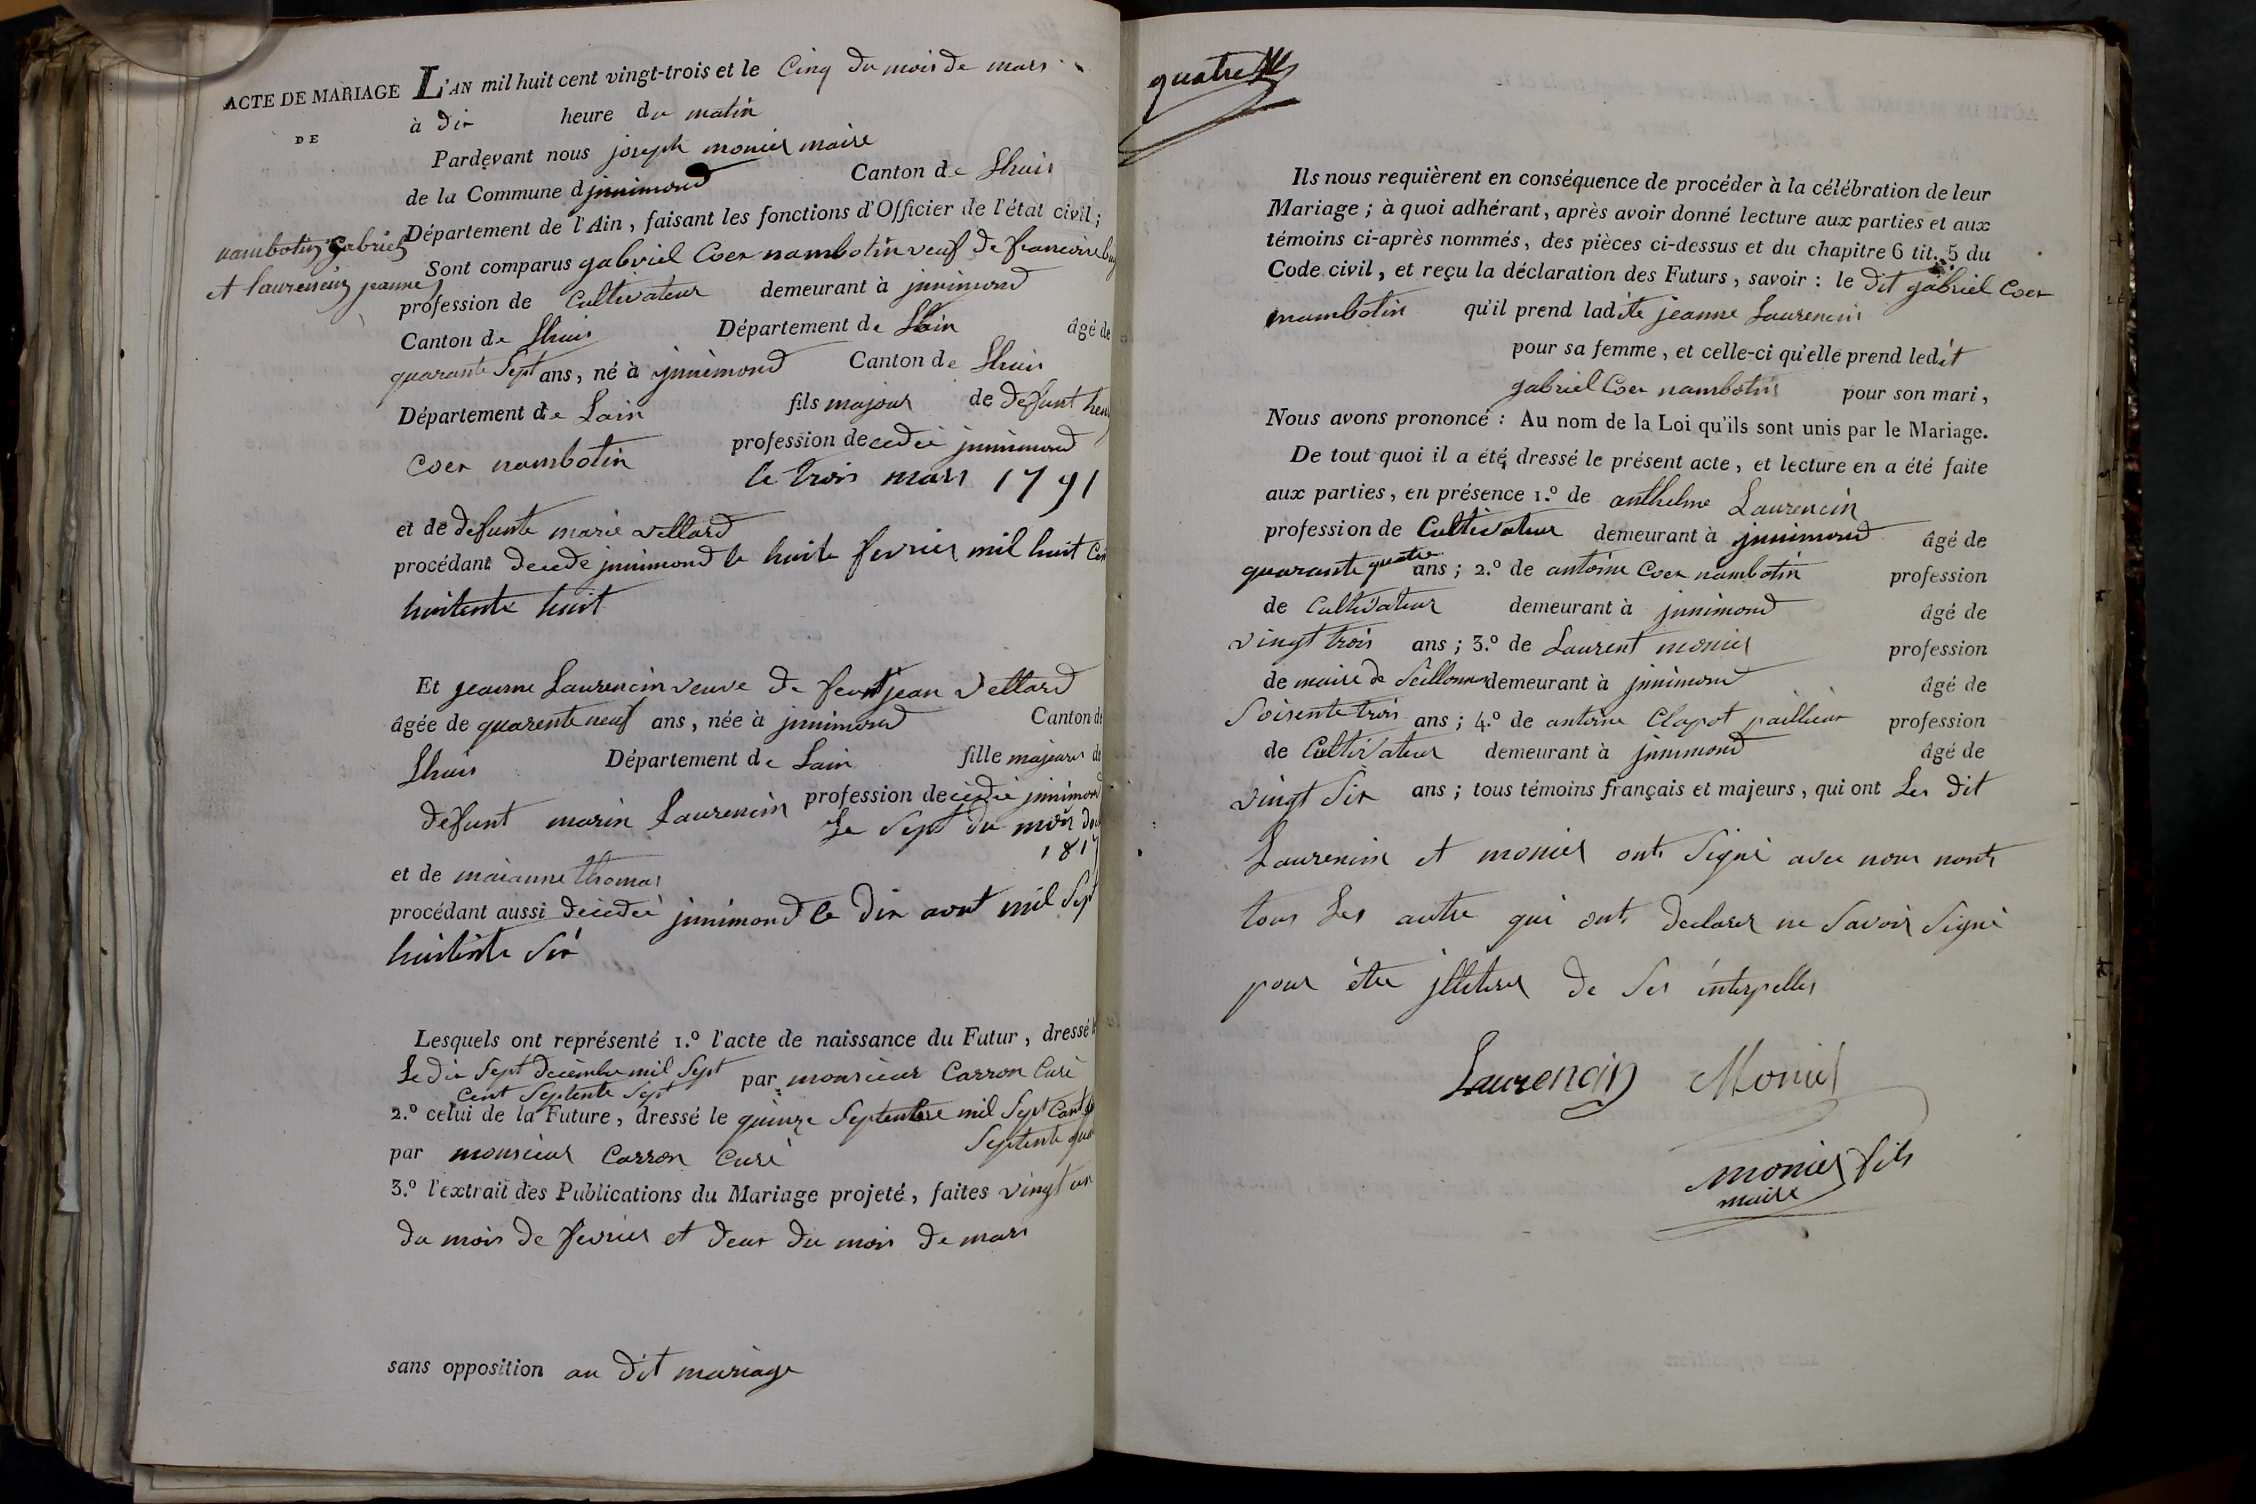 ACTE DE MARIAGE
DE
nambotin gabriel
et laurencin jeanne
L'AN mil huit cent vingt-trois et le Cinq du mois de mars
à dix heure du matin
Pardevant nous joseph monier maire
de la Commune d jnnimond Canton de Lhuis
Département de l'Ain, faisant les fonctions d'Officier de l'état civil;
Sont comparus gabriel Coer nambotin veuf de francoise
profession de Cultivateur demeurant à jnnimond
Canton de Lhuis Département de Lain âgé de
quarante Sept ans, né à jnnimond Canton de Lhuis
Département de Lain fils majour de defunt
coer nambotin profession decedée jnnimond
le trois mars 1791
et de defunte marie vettard
procédant decede jnnimond le huite fevrier mil huit Cen
huitente huit
Et jeanne Laurencin veuve de feu jean vettard
âgée de quarente neuf ans, née à jnnimond Canton de
Lhuis Département de Lain fille majeure de
defunt marin Laurencin profession decedée jnnimond
Le Sept du mois
181
et de maianne thomas
procédant aussi decedée jnnimond le dix aout mil Sept
huitente Six
Lesquels ont représenté 1.º l'acte de naissance du Futur, dressé le
Le dix Sept decembre mil Sept
Cent Septente Sept par monsieur Carron Curé
2.º celui de la Future, dressé le quinze Septembre mil Sept Cent
Septente
par monsieur Carron Curé
3.º l'extrait des Publications du Mariage projeté, faites vingt
du mois de fevrier et deux du mois de mars
sans opposition au dit mariage
quatre
Ils nous requièrent en conséquence de procéder à la célébration de leur
Mariage; à quoi adhérant, après avoir donné lecture aux parties et aux
témoins ci-après nommés, des pièces ci-dessus et du chapitre 6 tit. 5 du
Code civil, et reçu la déclaration des Futurs, savoir: le dit gabriel Coer
nambotin qu'il prend ladite jeanne Laurencin
pour sa femme, et celle-ci qu'elle prend ledit
gabriel Coer nambotin pour son mari,
Nous avons prononcé: Au nom de la Loi qu'ils sont unis par le Mariage.
De tout quoi il a été dressé le présent acte, et lecture en a été faite
aux parties, en présence 1.º de anthelme Laurencin
profession de Cultivateur demeurant à jnnimond âgé de
quarante quatre ans; 2.º de antoine Coer nambotin profession
de Cultivateur demeurant à jnnimond âgé de
vingt trois ans; 3.º de Laurent monier profession
de maire de Seillonnas demeurant à jnnimond âgé de
Soisente trois ans; 4.º de antoine Clapot paillieur profession
de Cultivateur demeurant à jnnimond âgé de
vingt Six ans; tous témoins français et majeurs, qui ont Les dit
Laurencin et monier onts Signé avec nous nonts
tous Les autre qui onts declarer ne Savoir Signé
pour être jlliterer de Ses interpelles
Laurencin Monier
monier fils
maire